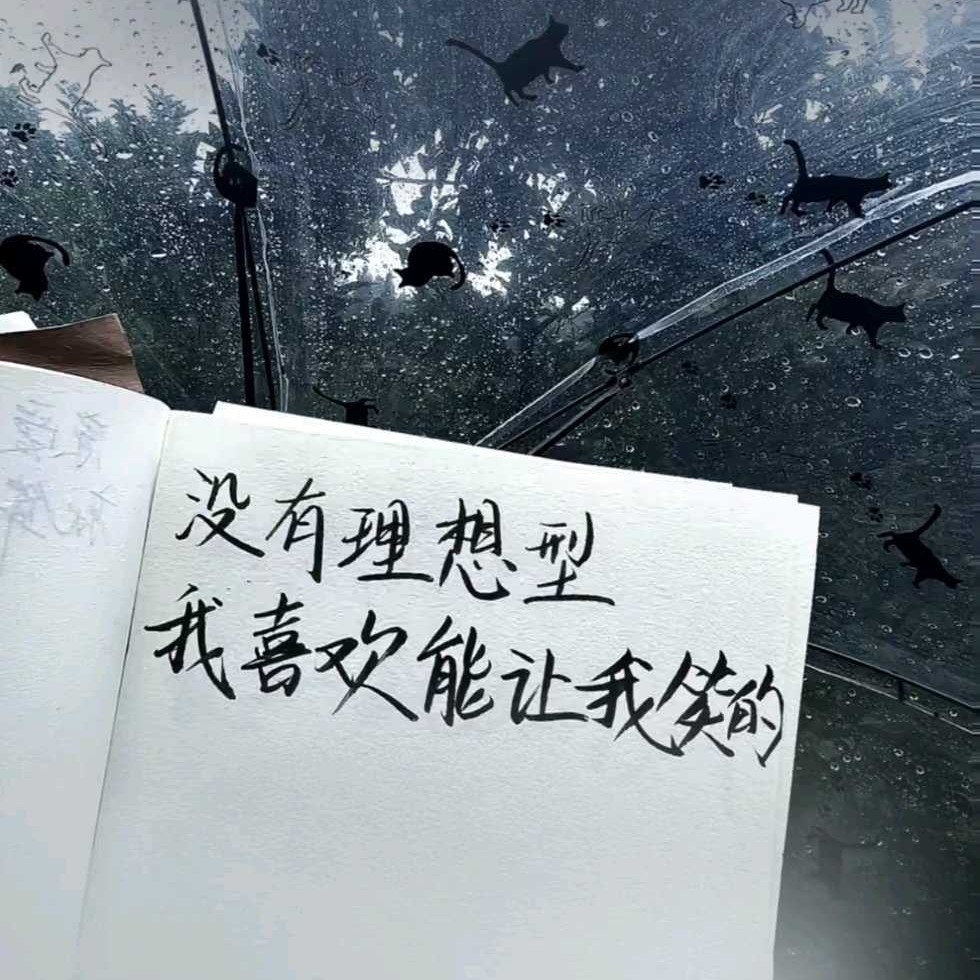 没有理想型
我喜欢能让我笑的